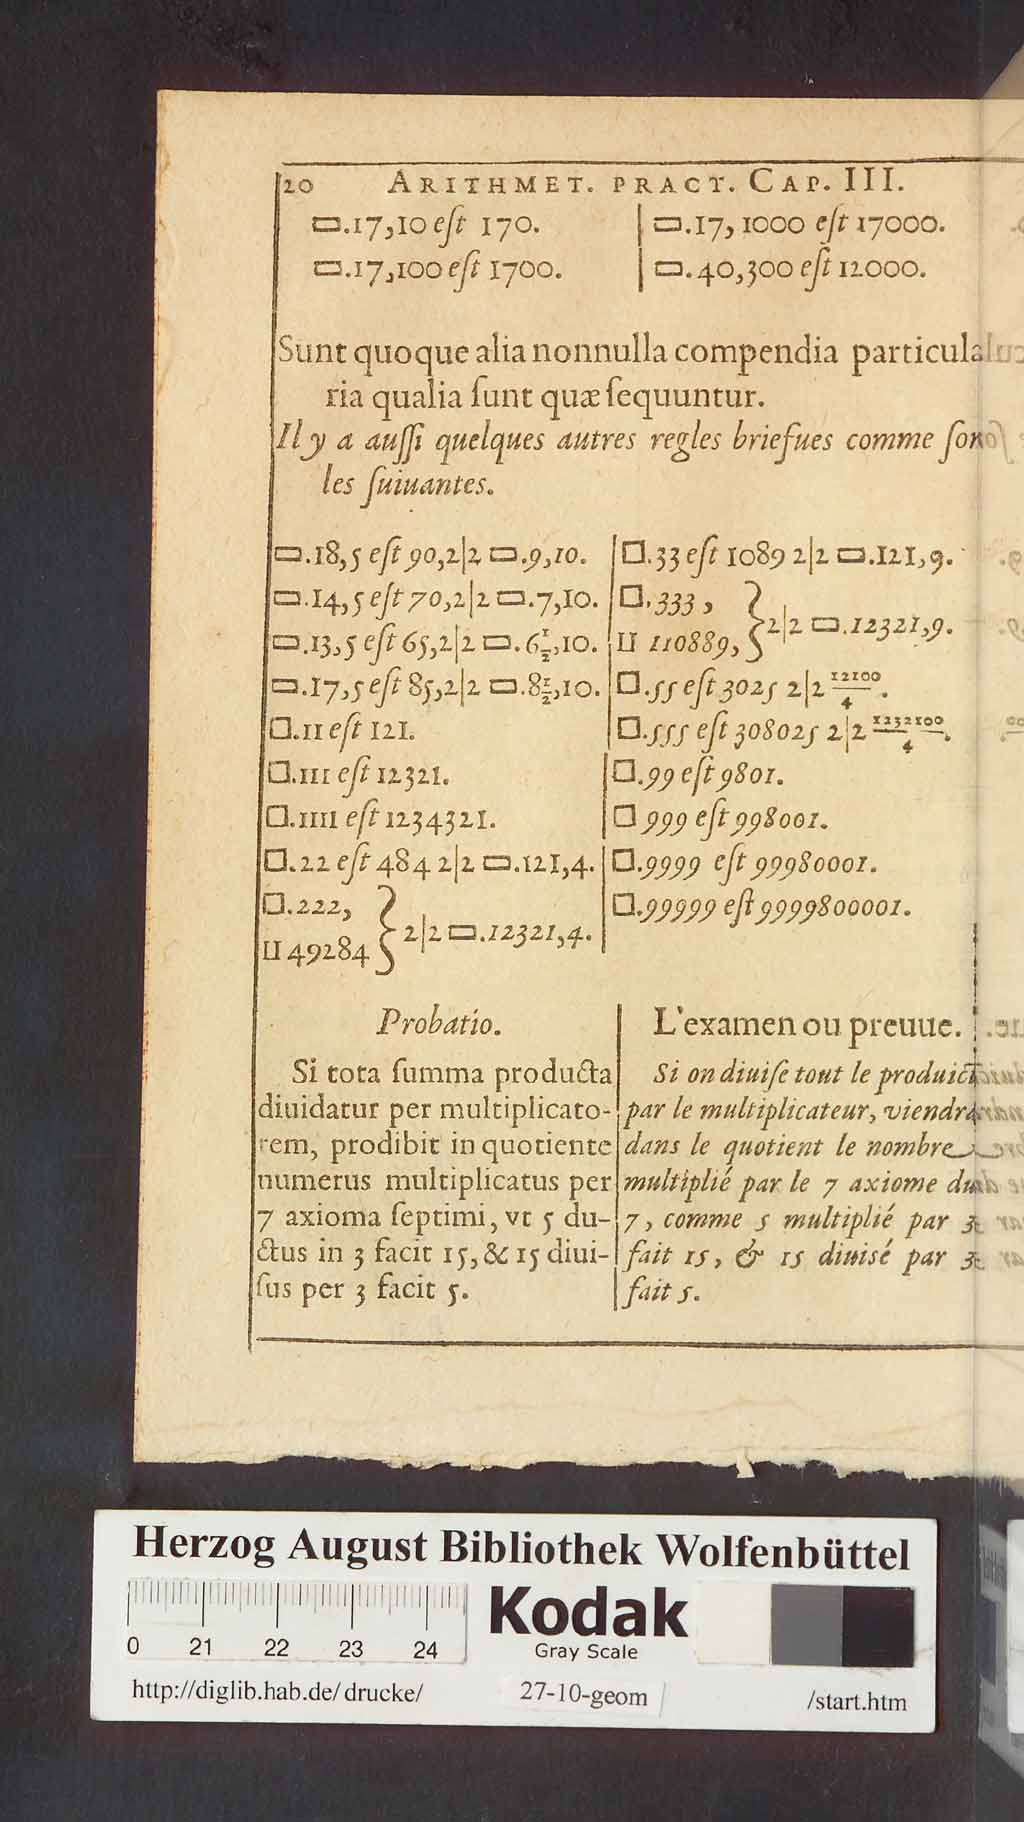 20 ARITHMET. PRACT. CAP. III.
▭.17,10 eſt 170.
▭.17,100 eſt 1700.
▭.17, 1000 eſt 17000.
▭.40,300 eſt 12000.
Sunt quoque alia nonnulla compendia particula
ria qualia ſunt quæ ſequuntur.
Il y a auſſi quelques autres regles briefues comme ſon
les ſuiuantes.
▭.18,5 eſt 90,2|2 ▭.9,10.
▭.14,5 eſt 70,2|2 ▭.7,10.
▭.13,5 eſt 65,2|2 ▭.6½,10.
▭.17,5 eſt 85,2|2 ▭.8½,10.
□.11 eſt 121.
□.111 eſt 12321.
□.1111 eſt 1234321.
□.22 eſt 484 2|2 ▭.121,4.
□.222,
⊔ 49284 } 2|2 ▭.12321,4.
□.33 eſt 1089 2|2 ▭.121,9.
□.333,
⊔ 110889, } 2|2 ▭.12321,9.
□.55 eſt 3025 2|2 12100/4.
□.555 eſt 308025 2|2 1232100/4.
□.99 eſt 9801.
□ 999 eſt 998001.
□.9999 eſt 99980001.
□.99999 eſt 9999800001.
Probatio.
Si tota ſumma producta
diuidatur per multiplicato-
rem, prodibit in quotiente
numerus multiplicatus per
7 axioma ſeptimi, vt 5 du-
ctus in 3 facit 15, & 15 diui-
ſus per 3 facit 5.
L'examen ou preuue.
Si on diuiſe tout le produict
par le multiplicateur, viendra
dans le quotient le nombre
multiplié par le 7 axiome du
7, comme 5 multiplié par 3
fait 15, & 15 diuisé par 3
fait 5.
Herzog August Bibliothek Wolfenbüttel
0 21 22 23 24
Kodak
Gray Scale
http://diglib.hab.de/drucke/ 27-10-geom /start.htm